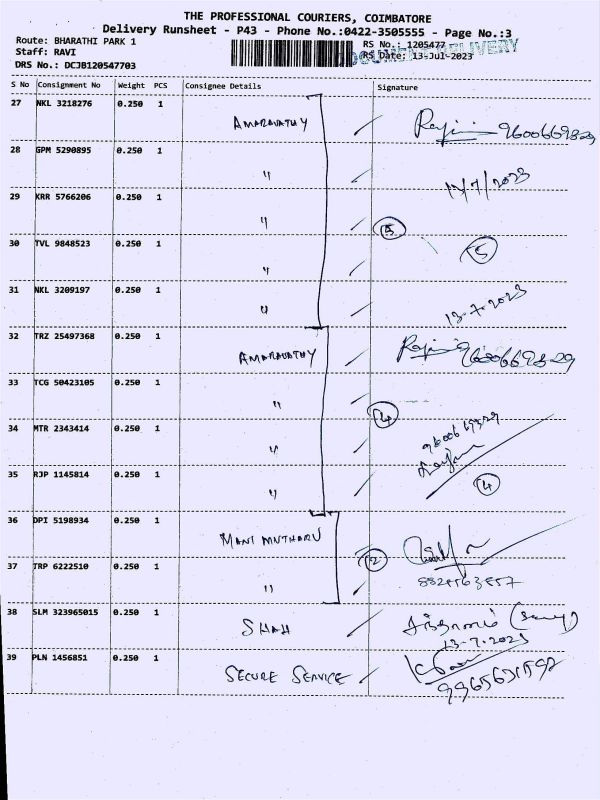 THE PROFESSIONAL COURIERS, COIMBATORE
Delivery Runsheet - P43 - Phone No.:0422-3505555 - Page No.:3
Route: BHARATHI PARK 1 RS No.: 1205477
Staff: RAVI RS Date: 13-Jul-2023 DELIVERY
DRS No.: DCJB120547703
S No Consignment No Weight PCS Consignee Details Signature
27 NKL 3218276 0.250 1 AMARAVATHY 9600669829
28 GPM 5290895 0.250 1 "
29 KRR 5766206 0.250 1 " 5
30 TVL 9848523 0.250 1 " 5
31 NKL 3209197 0.250 1 " 13-7-2023
32 TRZ 25497368 0.250 1 AMARAVATHY
33 TCG 50423105 0.250 1 " 4
34 MTR 2343414 0.250 1 "
35 RJP 1145814 0.250 1 " 4
36 DPI 5198934 0.250 1
37 TRP 6222510 0.250 1 " 2
38 SLM 323965015 0.250 1 SHAH
13-7-2023
39 PLN 1456851 0.250 1 SECURE SERVICE